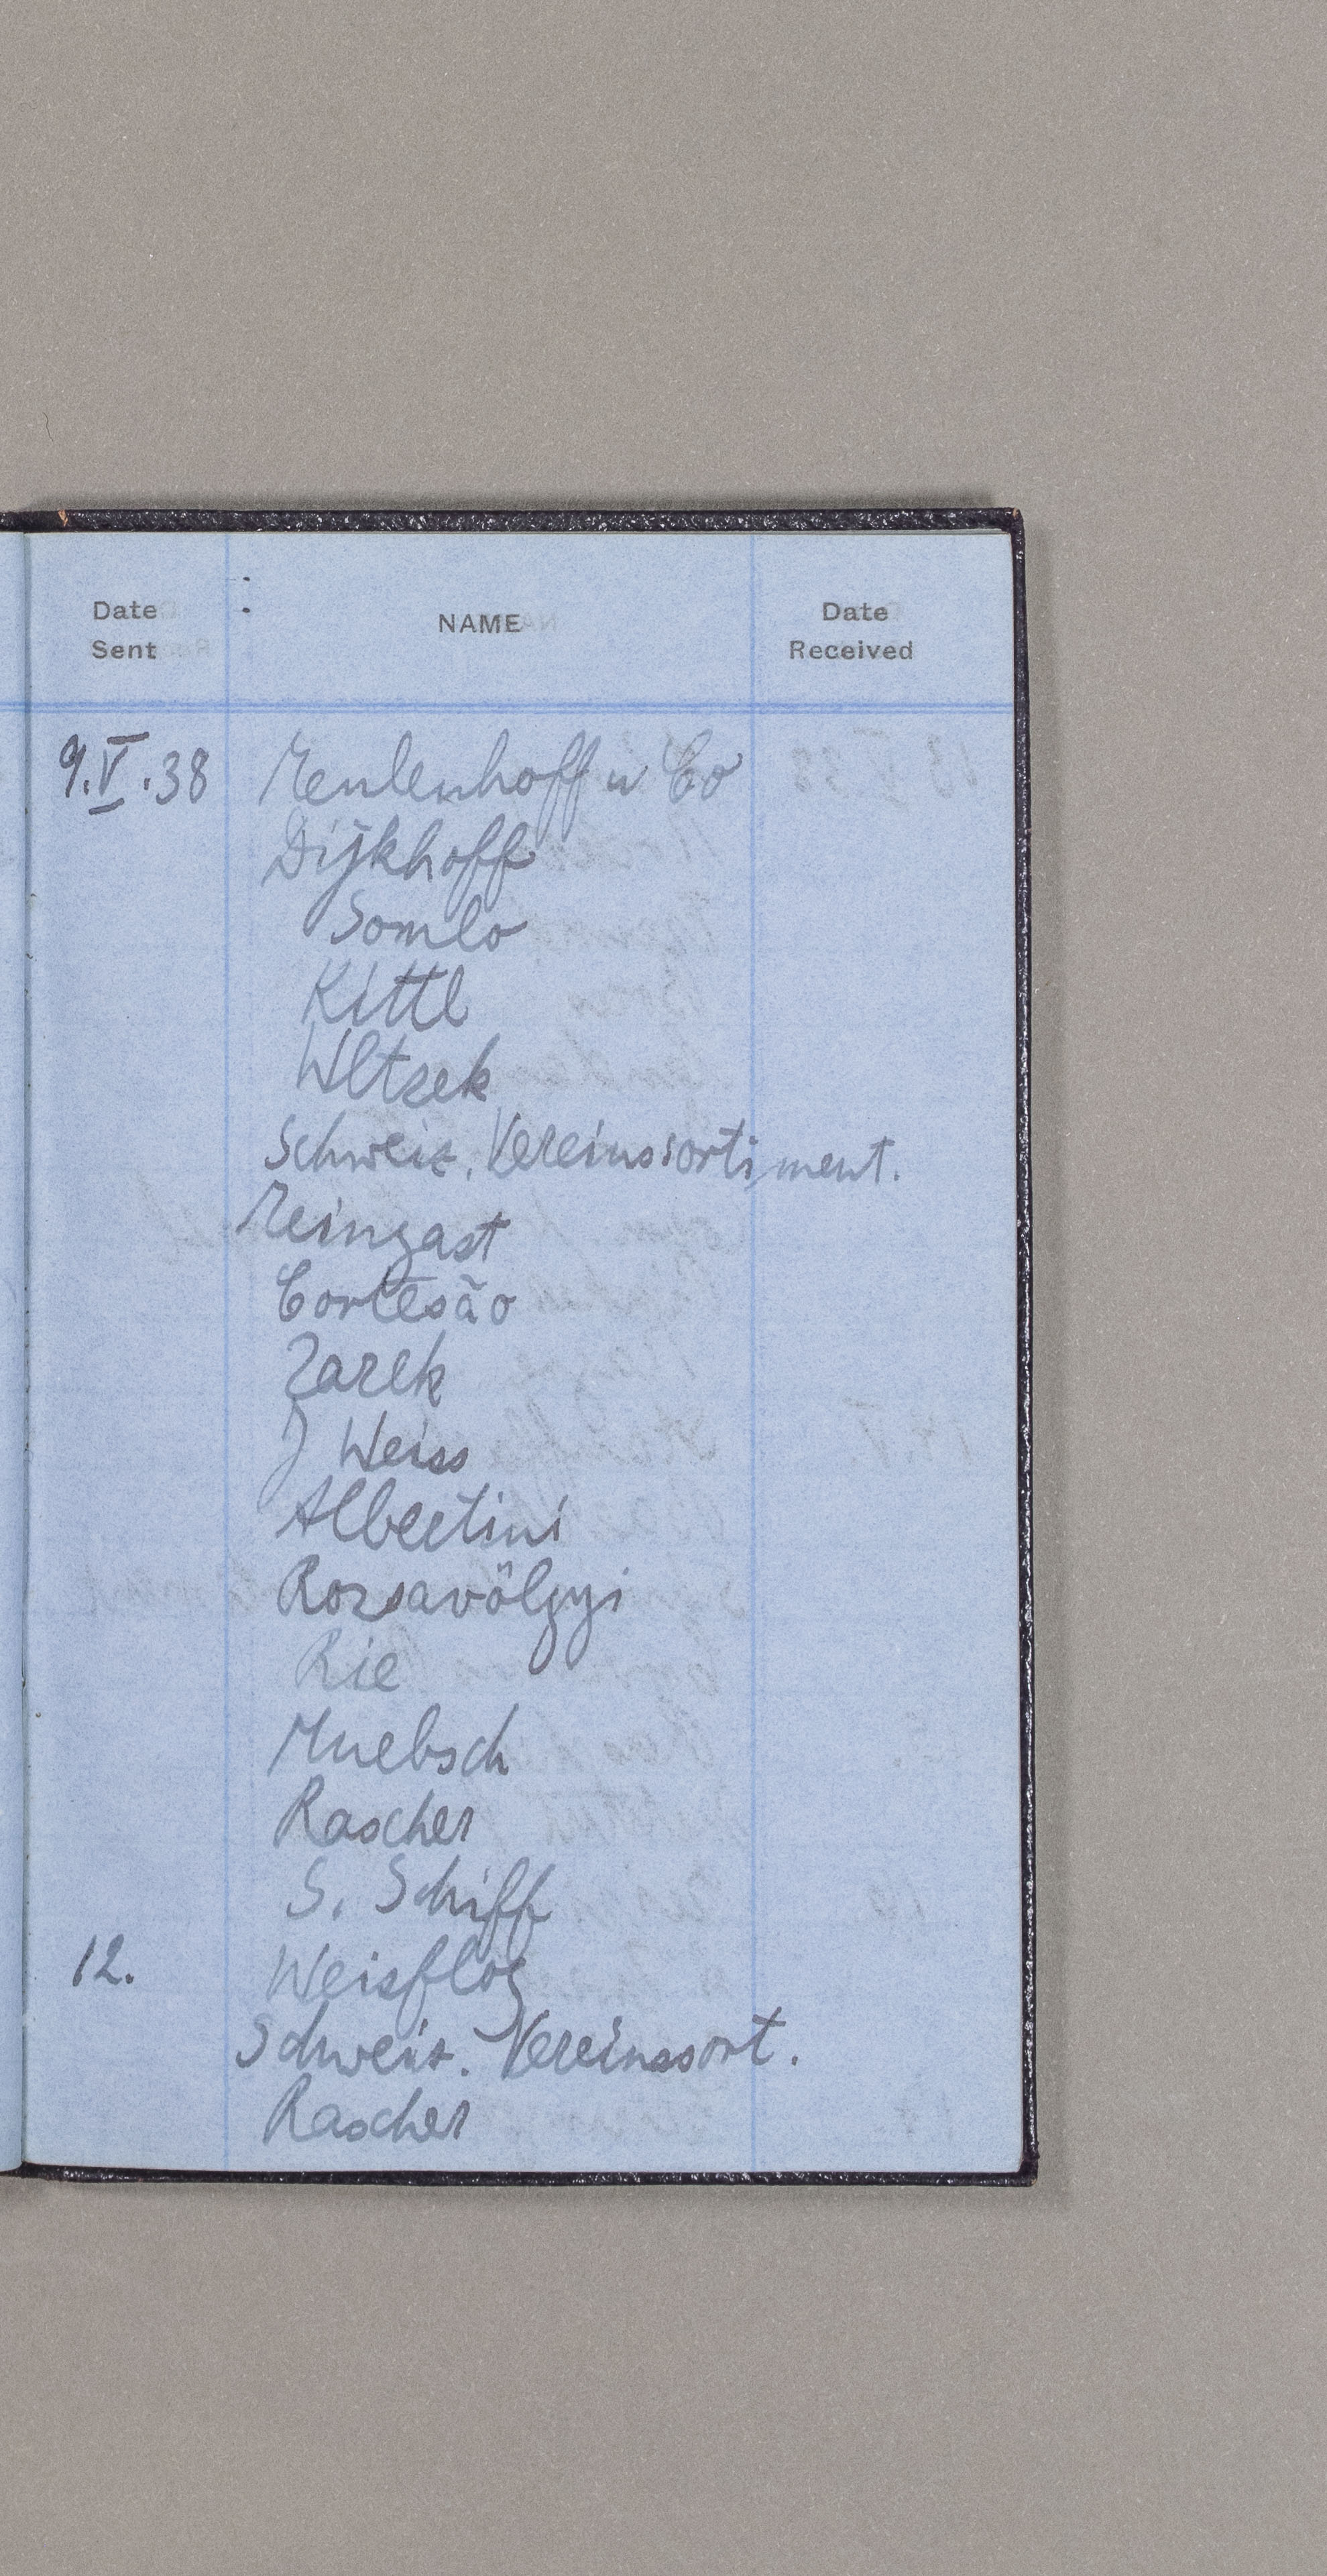 Date Sent NAME Date Received
9.V.38 Meulenhoff u Co
Dijkhoff
Somlo
Kittl
Wltzek
Schweiz. Vereinssortiment.
Meingast
Cortesão
Zarek
J Weiss
Albertini
Rozsavölgyi
Rie
Huebsch
Rascher
S. Schiff
12. Weisflog
Schweiz. Vereinssort.
Rascher